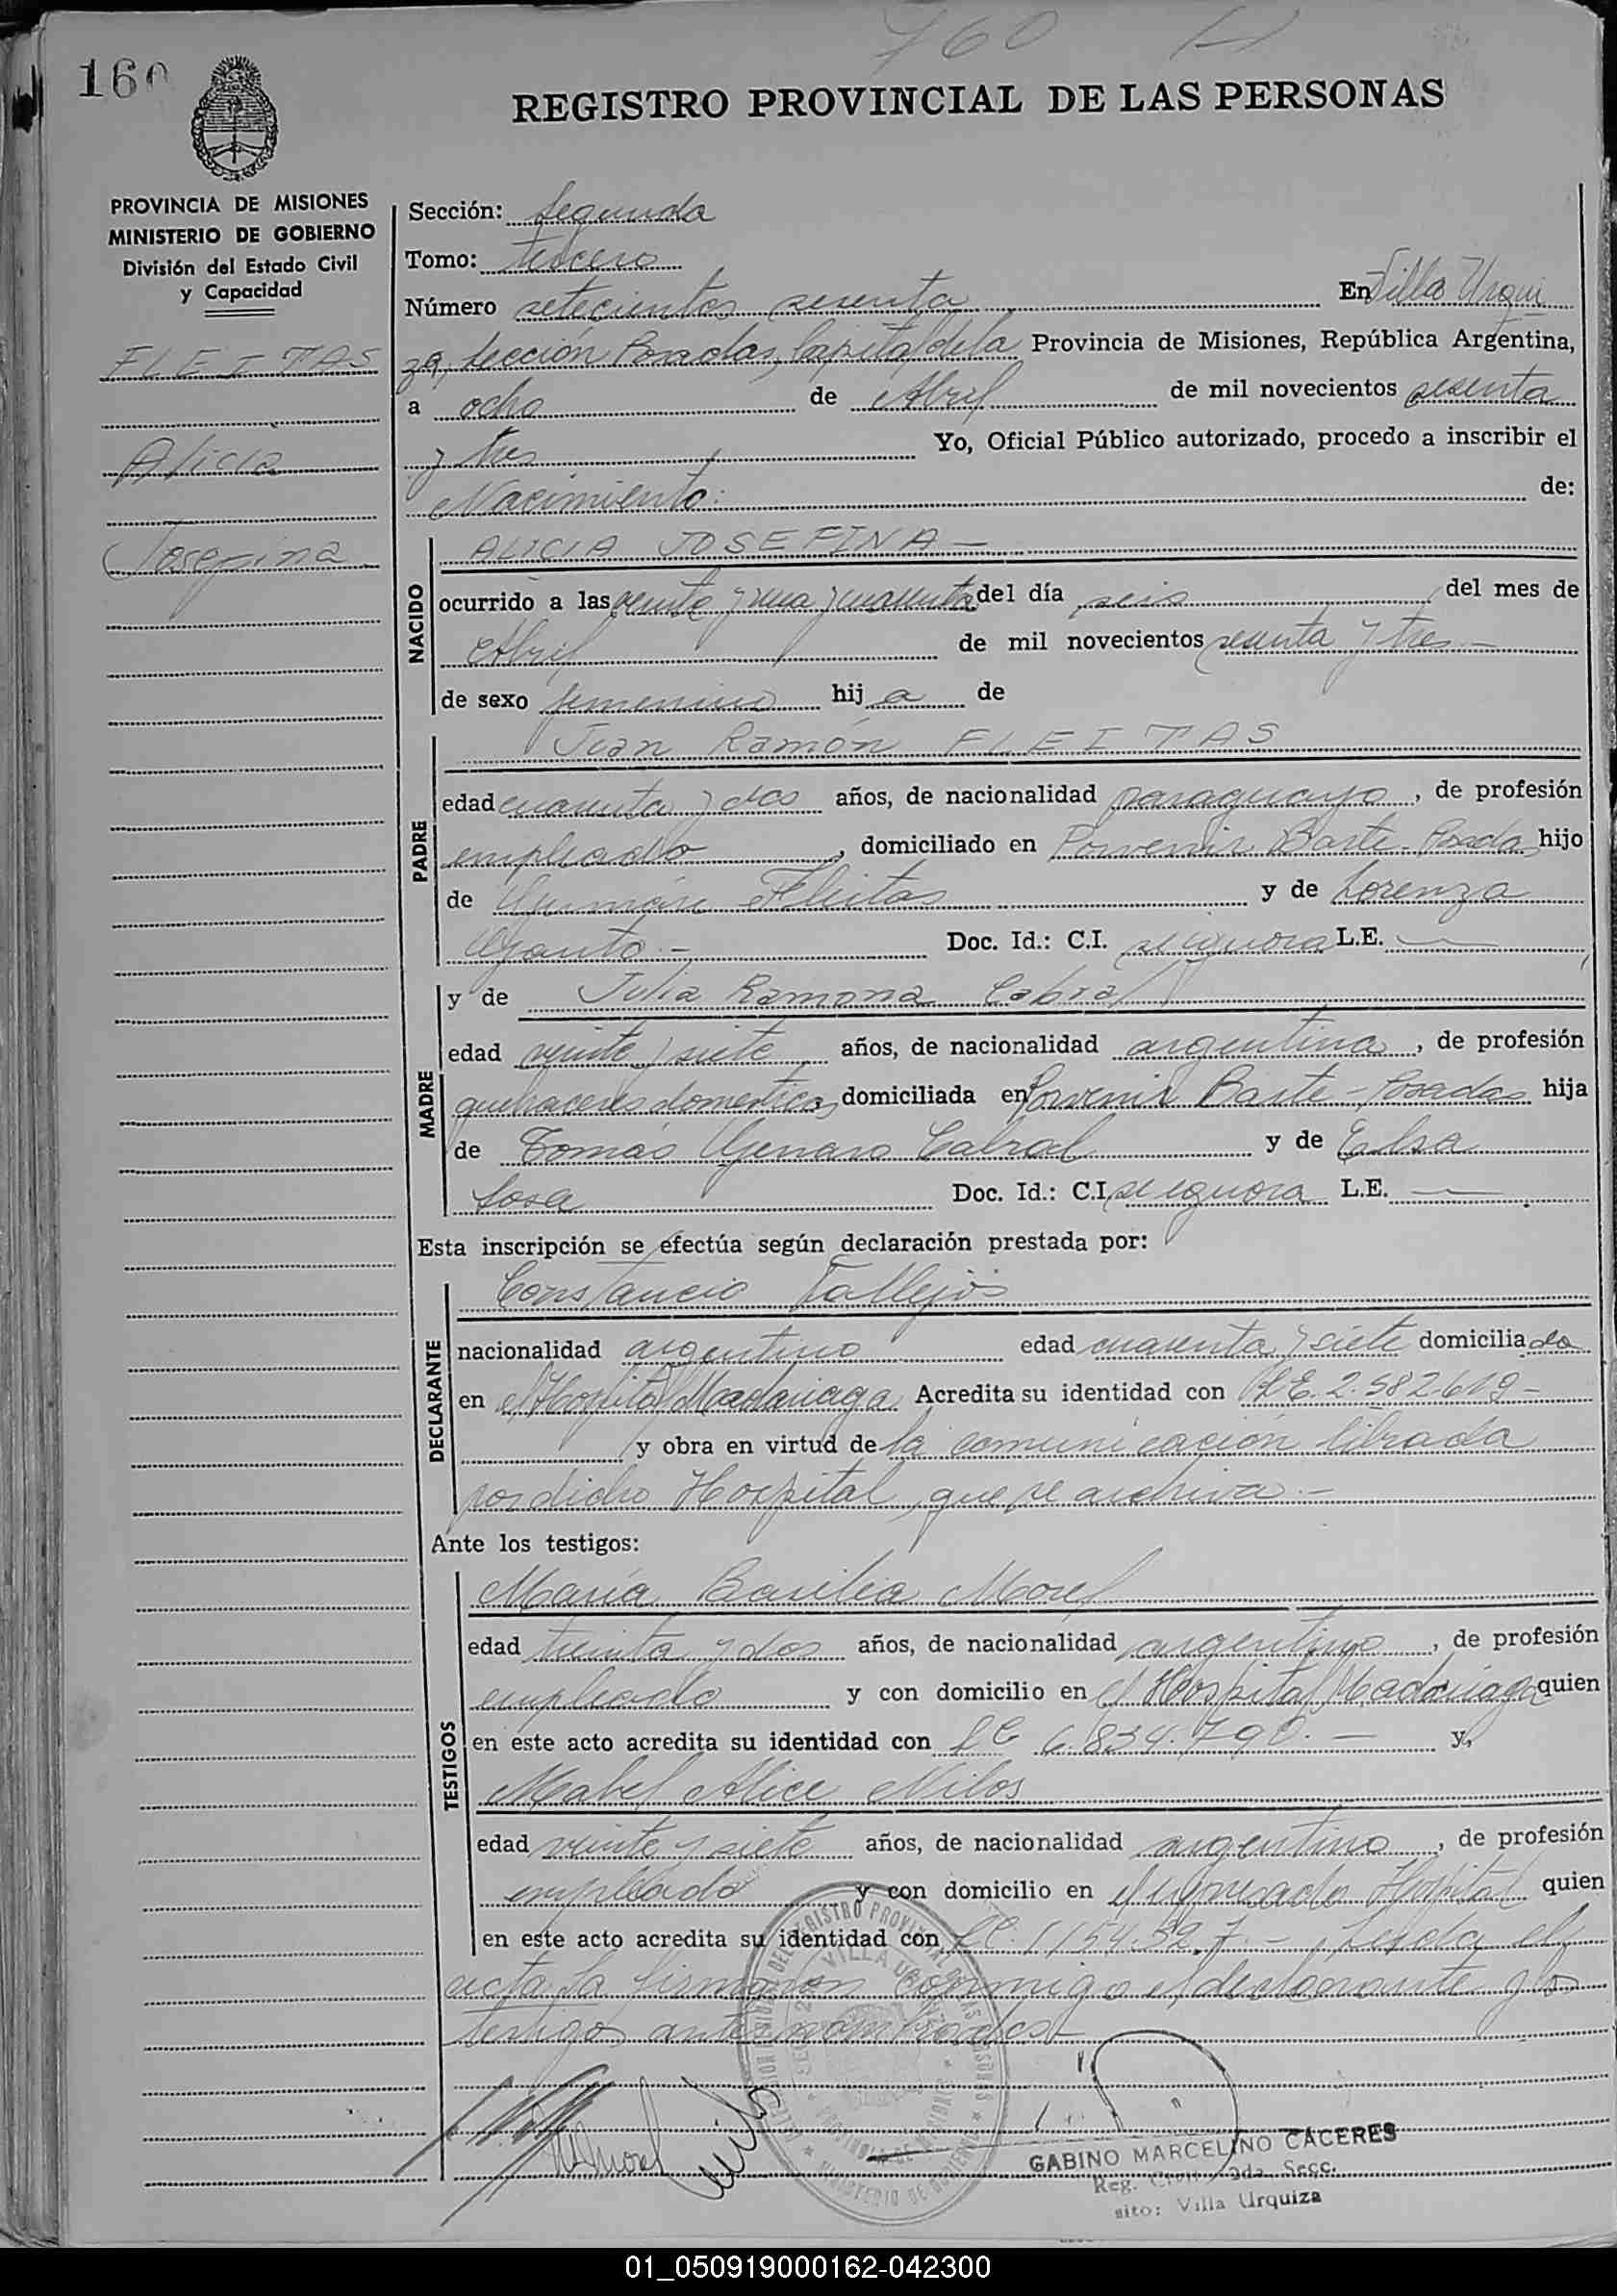 760
160
REGISTRO PROVINCIAL DE LAS PERSONAS
PROVINCIA DE MISIONES
MINISTERIO DE GOBIERNO
División del Estado Civil
y Capacidad
FLEITAS
Alicia
Josefina
Sección: Segunda
Tomo: tercero
Número setecientos sesenta En Villa Urqui
za, Sección Posadas, Capital de la Provincia de Misiones, República Argentina,
a ocho de Abril de mil novecientos sesenta
y tres Yo, Oficial Público autorizado, procedo a inscribir el
Nacimiento: de:
NACIDO
ALICIA JOSEFINA-
ocurrido a las veinte y una y cuarenta del día seis del mes de
Abril de mil novecientos sesenta y tres-
de sexo femenino hij a de
PADRE
Juan Ramón FLEITAS
edad cuarenta y dos años, de nacionalidad paraguayo, de profesión
empleado, domiciliado en Porvenir Baste-Posadas hijo
de Germán Fleitas y de Lorenza
Doc. Id.: C.I. se ignora L.E. —
MADRE
y de Julia Ramona Cabral
edad veinte y siete años, de nacionalidad argentina, de profesión
quehaceres domesticos, domiciliada en Porvenir Baste-Posadas hija
de Tomás Genaro Cabral y de Elsa
Sosa Doc. Id.: C.I. se ignora L.E. —
Esta inscripción se efectúa según declaración prestada por:
DECLARANTE
Constancio Vallejos
nacionalidad argentino edad cuarenta y siete domicilia do
en el Hospital Madariaga Acredita su identidad con L.E. 2.582.619-
y obra en virtud de la comunicación librada
por dicho Hospital, que se archiva.-
Ante los testigos:
TESTIGOS
María Basilia Morel
edad treinta y dos años, de nacionalidad argentina, de profesión
empleada y con domicilio en el Hospital Madariaga quien
en este acto acredita su identidad con LC 6.834.790.- y,
Mabel Alice Milos
edad veinte y siete años, de nacionalidad argentina, de profesión
empleada y con domicilio en el expresado Hospital quien
en este acto acredita su identidad con LC. 1154.527.- Leída el
acta la firmaron conmigo el declarante y los
testigos antes nombrados-
GABINO MARCELINO CACERES
Reg. Civil 2da. Secc.
sito: Villa Urquiza
01_050919000162-042300